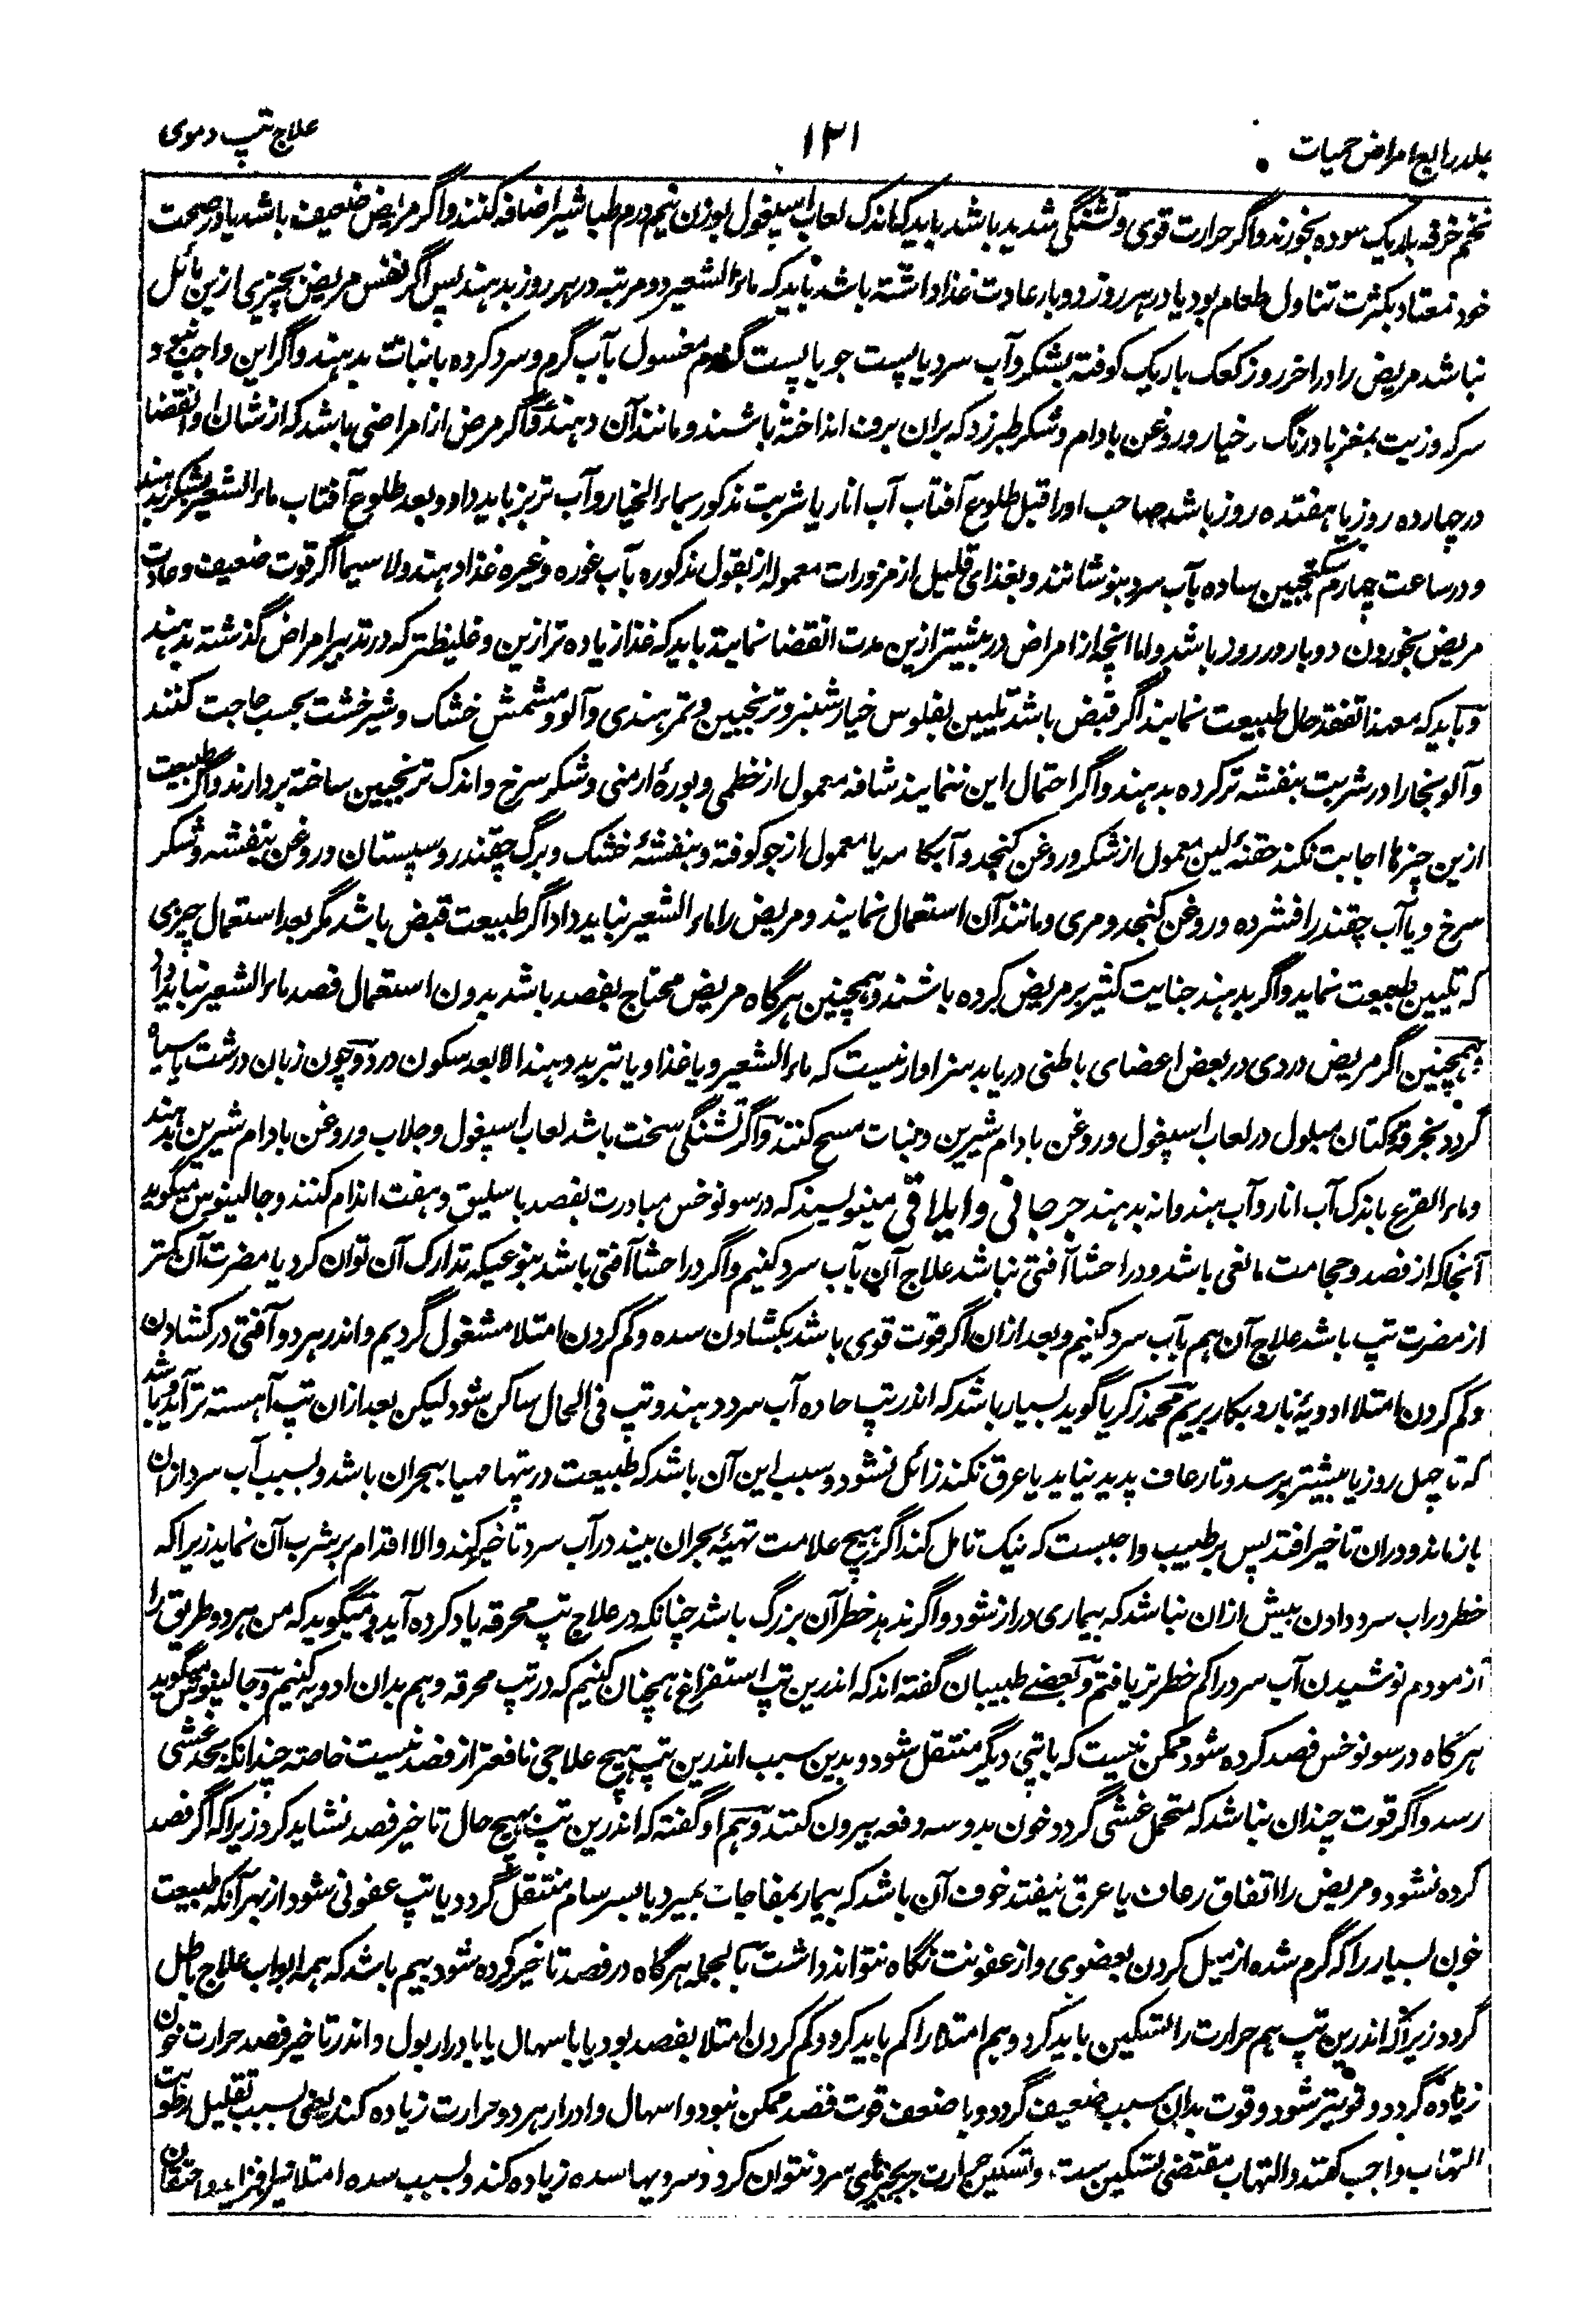 جلد رابع امراض حمیات
۱۲۱
علاج تپ دموی
تخم خرفه باریک سوده بخورند و اگر حرارت قوی و تشنگی شدید باشد باید که اندک لعاب اسپغول بوزن نیم درم طباشیر اضافه کنند و اگر مریض ضعیف باشد یا در صحت
خود معتاد بکثرت تناول طعام بود یا در هر روز دو بار عادت غذا داشته باشد باید که ماء الشعیر دو مرتبه در هر روز بدهند پس اگر نفس مریض بچیزی ازین مائل
نباشد مریض را در اخر روز کعک باریک کوفته بشکر و آب سرد یا پست جو یا پست گندم مغسول بآب گرم و سرد کرده با نبات بدهند و اگر این واجب نبود
سرکه و زیت بمغز بادرنگ و خیار و روغن بادام و شکر طبرزد که بران برف انداخته باشند و مانند آن دهند و اگر مرض از امراضی باشد که از شان او انقضا
در چهارده روز یا هفتده روز باشد صاحب او را قبل طلوع آفتاب آب انار یا شربت مذکور بماء الخیار و آب تربز باید داد و بعد طلوع آفتاب ماء الشعیر بشکر بدهند
و در ساعت چهارم سکنجبین ساده بآب سرد بنوشانند و بغذای قلیل از مزورات معموله از بقول مذکوره بآب غوره و غیره غذا دهند ولا سیما اگر قوت ضعیف و عادت
مریض بخوردن دوبار در روز باشد و اما انچه از امراض در بیشتر ازین مدت انقضا نمایند باید که غذا زیاده تر ازین و غلیظتر که در تدبیر امراض گذشته بدهند
و باید که معهذا تفقد حال طبیعت نمایند اگر قبض باشد تلیین بفلوس خیارشنبر و ترنجبین و تمر هندی و آلو و مشمش خشک و شیر خشت بحسب حاجت کنند
و آلو بخارا در شربت بنفشه تر کرده بدهند و اگر احتمال این ننمایند شافه معمول از خطمی و بورۀ ارمنی و شکر سرخ و اندک ترنجبین ساخته بردارند و اگر طبیعت
ازین چیزها اجابت نکند حقنۀ لین معمول از شکر و روغن کنجد و آبکامه یا معمول از جو کوفته و بنفشۀ خشک و برگ چقندر و سپستان و روغن بنفشه و شکر
سرخ و یا آب چقندر افشرده و روغن کنجد و مری و مانند آن استعمال نمایند و مریض را ماء الشعیر نباید داد اگر طبیعت قبض باشد مگر بعد استعمال چیزی
که تلیین طبیعت نماید و اگر بدهند جنایت کثیر بر مریض کرده باشند و همچنین هرگاه مریض محتاج بفصد باشد بدون استعمال فصد ماء الشعیر نباید داد
و همچنین اگر مریض دردی در بعض اعضای باطنی دریابد سزاوار نیست که ماء الشعیر و یا غذا و یا تبرید دهند الا بعد سکون درد و چون زبان درشت یا سیاه
گردد بخرقۀ کتان مبلول در لعاب اسپغول و روغن بادام شیرین و نبات مسح کنند و اگر تشنگی سخت باشد لعاب اسپغول و جلاب و روغن بادام شیرین بدهند
و ماء القرع باندک آب انار و آب هندوانه بدهند جرجانی و ایلاقی مینویسند که در سونوخس مبادرت بفصد باسلیق و هفت اندام کنند و جالینوس میگوید
آنجا که از فصد و حجامت مانعی باشد و در احشا آفتی نباشد علاج آن بآب سرد کنیم و اگر در احشا آفتی باشد بنوعیکه تدارک آن توان کرد یا مضرت آن کمتر
از مضرت تپ باشد علاج آن هم بآب سرد کنیم و بعد ازان اگر قوت قوی باشد بکشادن سده و کم کردن امتلا مشغول گردیم و اندر هر دو آفتی در کشادن
و کم کردن امتلا ادویۀ بارد بکار بریم محمد زکریا گوید بسیار باشد که اندر تپ حاده آب سرد دهند و تپ فی الحال ساکن شود لیکن بعد ازان تپ آهسته تر آید و باشد
که تا چهل روز یا بیشتر برسد و تا رعاف پدید نیاید یا عرق نکند زائل نشود و سبب این آن باشد که طبیعت در تپها مهیا ببحران باشد و بسبب آب سرد ازان
باز ماند و دران تاخیر افتد پس بر طبیب واجبست که نیک تامل کند اگر هیچ علامت تهیۀ بحران بیند در آب سرد تاخیر کند والا اقدام بر شرب آن نماید زیرا که
خطر در اب سرد دادن بیش ازان نباشد که بیماری دراز شود و اگر ندهد خطر آن بزرگ باشد چنانکه در علاج تپ محرقه یاد کرده آید و میگوید که من هر دو طریق را
آزمودم نوشیدن آب سرد را کم خطر تر یافتم و بعضے طبیبان گفته اند که اندرین تپ استفراغ همچنان کنیم که در تپ محرقه و هم بدان ادویه کنیم و جالینوس میگوید
هرگاه در سونوخس فصد کرده شود ممکن نیست که با تپی دیگر منتقل شود و بدین سبب اندرین تپ هیچ علاجی نافعتر از فصد نیست خاصته چندانکه بحد غشی
رسد و اگر قوت چندان نباشد که متحمل غشی گردد خون بدو سه دفعه بیرون کنند و هم او گفته که اندرین تپ بهیچ حال تاخیر فصد نشاید کرد زیرا که اگر فصد
کرده نشود و مریض را اتفاق رعاف یا عرق نیفتد خوف آن باشد که بیمار بمفاجات بمیرد یا بسرسام منتقل گردد یا تپ عفونی شود از بهر آنکه طبیعت
خون بسیار را که گرم شده از میل کردن بعضوی و از عفونت نگاه نتواند داشت بالجمله هرگاه در فصد تاخیر کرده شود بیم باشد که همه ابواب علاج باطل
گردد زیرا که اندرین تپ هم حرارت را تسکین باید کرد و هم امتلا را کم باید کرد و کم کردن امتلا بفصد بود یا باسهال یا بادرار بول و اندر تاخیر فصد حرارت خون
زیاده گردد و قویتر شود و قوت بدان سبب ضعیف گردد و با ضعف قوت فصد ممکن نبود و اسهال و ادرار هر دو حرارت زیاده کند یعنی بسبب تقلیل رطوبت
التهاب واجب کنند و التهاب مقتضی تسکین ست و تسکین حرارت جز بچیزهای سرد نتوان کرد و سردیها سده زیاده کند و بسبب سده امتلا نیز افزاید و احتقان